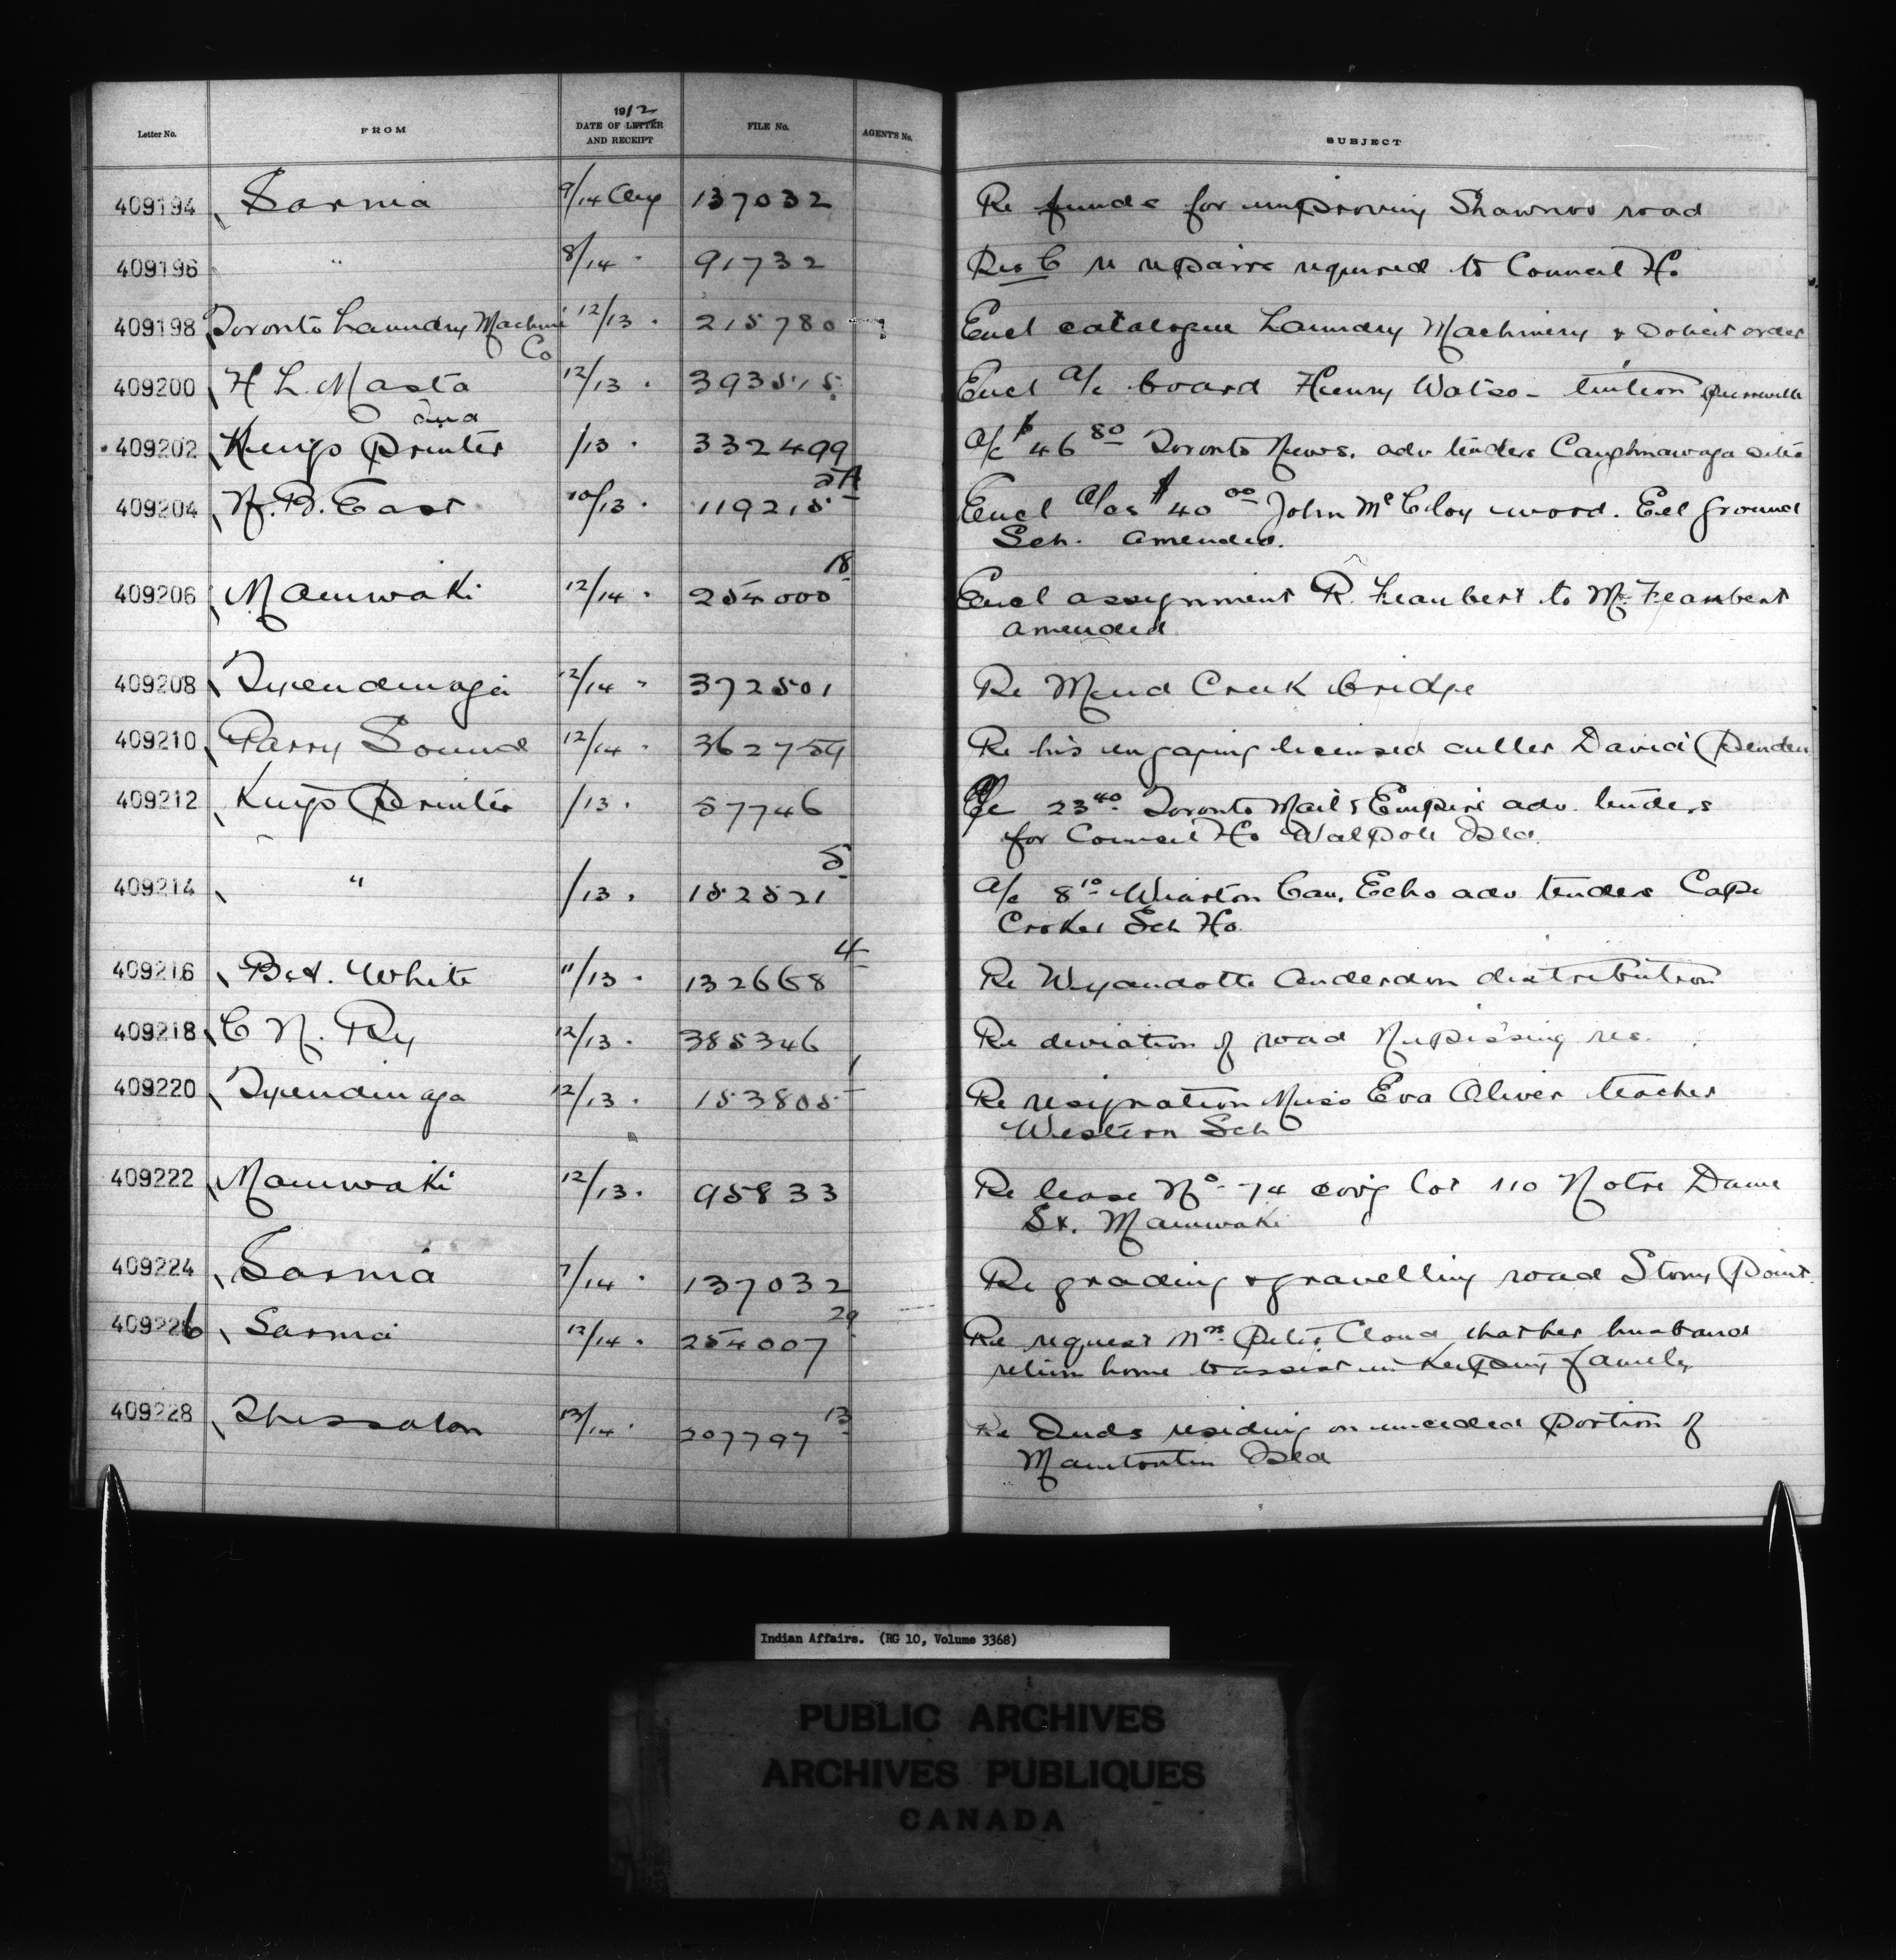 Letter No. FROM 1912 DATE OF LETTER AND RECEIPT FILE No. AGENT'S No. SUBJECT
409194 Sarnia 9/14 Aug 137032 Re funds for improving Shawnoo road
409196 " 8/14 " 91732 Res C re repairs required to Council Ho
409198 Toronto Laundry Machine 12/13 " 215780 Encl catalogue Laundry Machinery & solicit order
Co
409200 H L. Masta 12/13 " 393515 Encl a/c board Henry Watso- tuition Pierreville
409202 Kings Printer /13 " 332499 a/c $46 80 Toronto News. adv tenders Caughnawaga
409204 N. B. East 10/13 " 119215 5A Encl a/cs $40 00 John McCloy wood. Eel Ground
Sch. amended.
409206 Maniwaki 12/14 " 254000 18 Encl assignment R. to M.
amended
409208 Tyendinaga 12/14 " 372501 Re Mud Creek bridge
409210 Parry Sound 12/14 " 362754 Re his engaging licensed culler David
409212 Kings Printer /13 " 57746 a/c 23 40 Toronto Mail & Empire adv. tenders
for Council Ho Walpole Isld.
409214 " /13 " 152521 5 a/c 8 10 Wiarton Can. Echo adv tenders Cape
Croker Sch Ho.
409216 Bet. White 11/13 " 132668 4 Re Wyandotte Anderdon distribution
409218 C N. Ry 12/13 " 385346 Re deviation of road Nipissing res.
409220 Tyendinaga 12/13 " 153805 1 Re resignation Miss Eva Oliver teacher
Western Sch
409222 Maniwaki 12/13 " 95833 Re lease No 74 covg lot 110 Notre Dame
St. Maniwaki
409224 Sarnia 7/14 " 137032 Re grading & gravelling road Stony Point.
409226 Sarnia 12/14 " 254007 29 Re request Mrs. Peter Cloud that her husband
return home to assist in keeping family
409228 Thessalon 13/14 " 207797 13 Re Inds residing on unceded portion of
Manitoulin Isld
Indian Affairs. (RG 10, Volume 3368)
PUBLIC ARCHIVES
ARCHIVES PUBLIQUES
CANADA